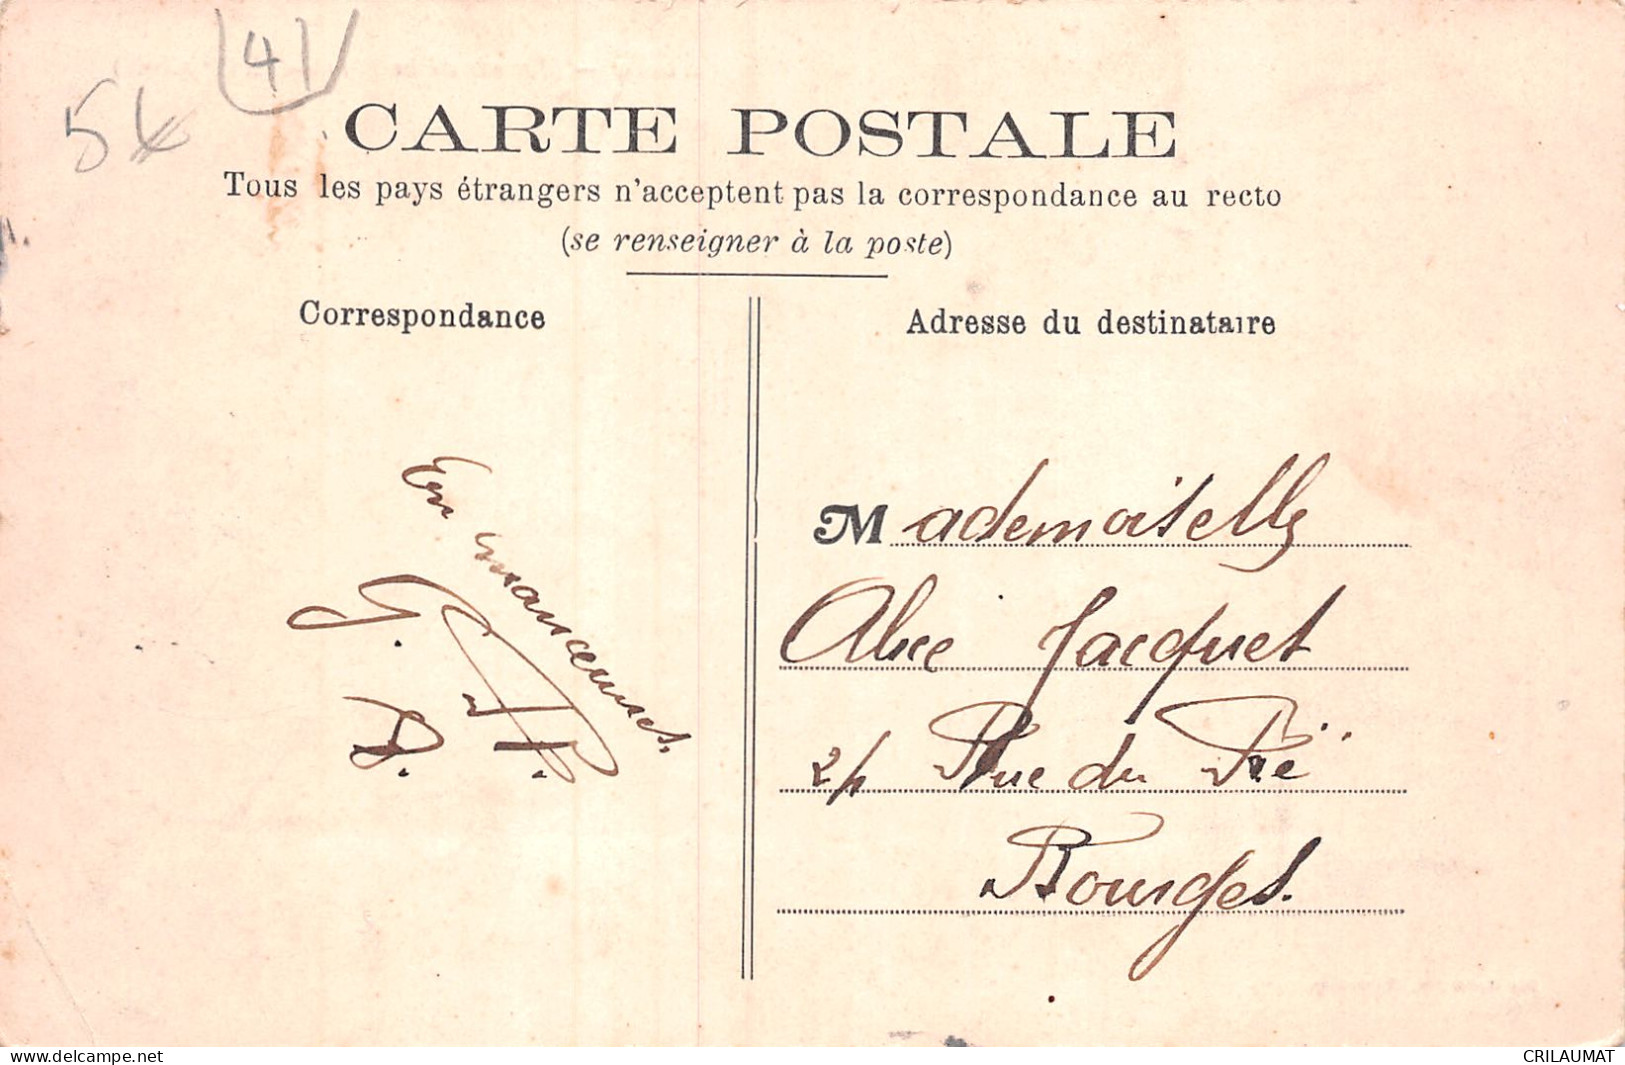 41
5€
CARTE POSTALE
Tous les pays étrangers n'acceptent pas la correspondance au recto
(se renseigner à la poste)
Correspondance
Adresse du destinataire
En manœuvres.
G. H.
D.
Mademoiselle
Alice Jacquet
24 Rue du Pré
Bourges.
www.delcampe.net
CRILAUMAT